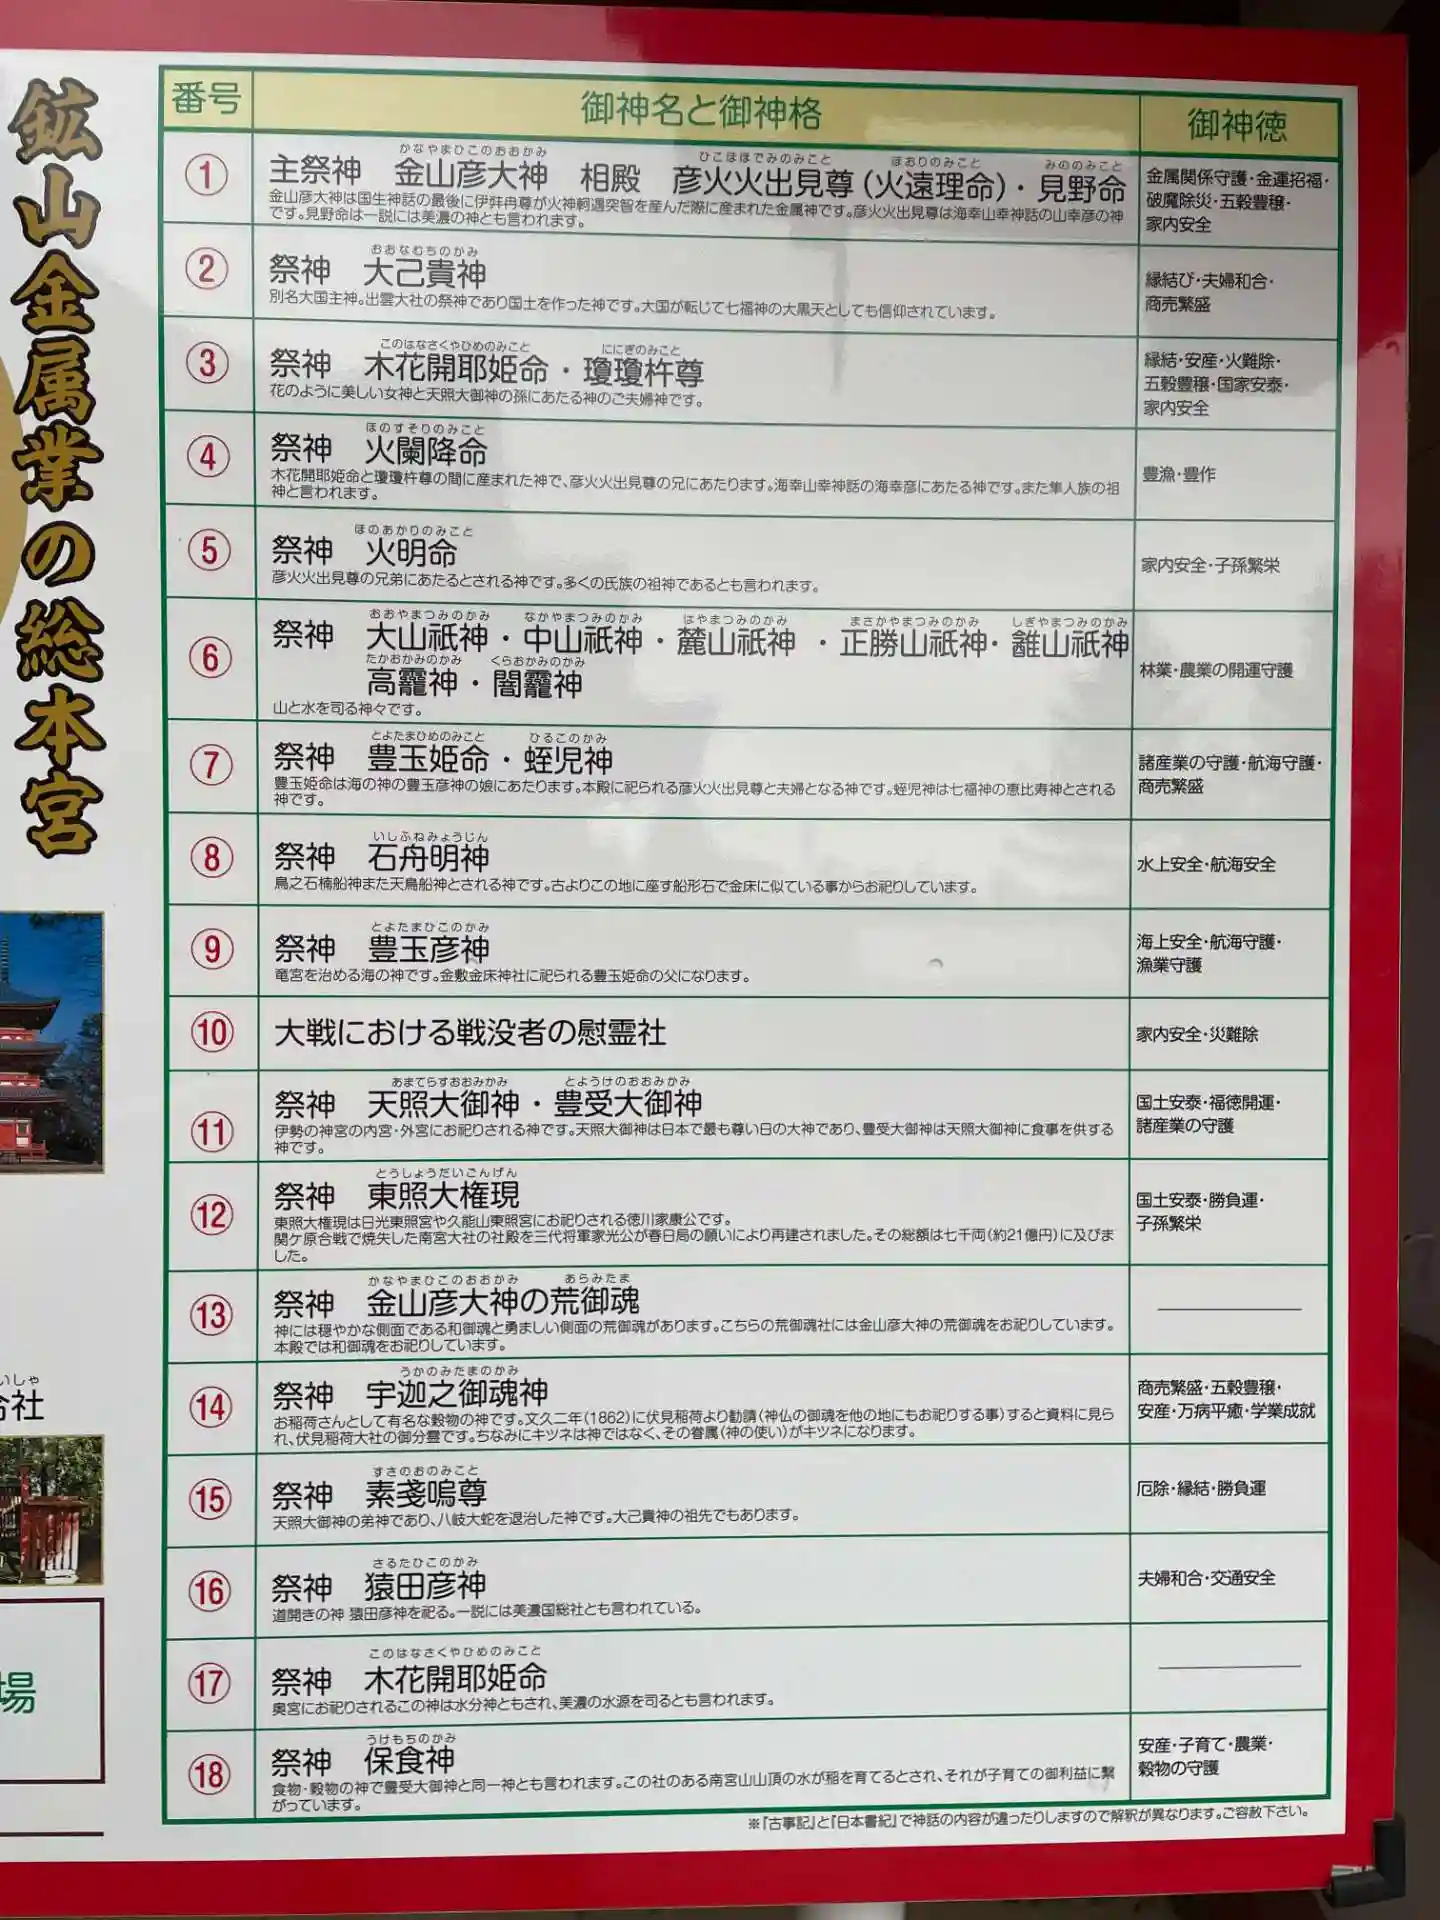 鉱山金属業の総本宮
番号
御神名と御神格
御神徳
①
かなやまひこのおおかみ ひこほほでみのみこと ほおりのみこと みののみこと
主祭神 金山彦大神 相殿 彦火火出見尊(火遠理命)・見野命
金山彦大神は国生神話の最後に伊弉冉尊が火神軻遇突智を産んだ際に産まれた金属神です。彦火火出見尊は海幸山幸神話の山幸彦の神
です。見野命は一説には美濃の神とも言われます。
金属関係守護・金運招福・
破魔除災・五穀豊穣・
家内安全
②
おおなむちのかみ
祭神 大己貴神
別名大国主神。出雲大社の祭神であり国土を作った神です。大国が転じて七福神の大黒天としても信仰されています。
縁結び・夫婦和合・
商売繁盛
③
このはなさくやひめのみこと ににぎのみこと
祭神 木花開耶姫命・瓊瓊杵尊
花のように美しい女神と天照大御神の孫にあたる神のご夫婦神です。
縁結・安産・火難除・
五穀豊穣・国家安泰・
家内安全
④
ほのすそりのみこと
祭神 火闌降命
木花開耶姫命と瓊瓊杵尊の間に産まれた神で、彦火火出見尊の兄にあたります。海幸山幸神話の海幸彦にあたる神です。また隼人族の祖
神と言われます。
豊漁・豊作
⑤
ほのあかりのみこと
祭神 火明命
彦火火出見尊の兄弟にあたるとされる神です。多くの氏族の祖神であるとも言われます。
家内安全・子孫繁栄
⑥
おおやまつみのかみ なかやまつみのかみ はやまつみのかみ まさかやまつみのかみ しぎやまつみのかみ
祭神 大山祇神・中山祇神・麓山祇神・正勝山祇神・䨄山祇神
たかおかみのかみ くらおかみのかみ
高龗神・闇龗神
山と水を司る神々です。
林業・農業の開運守護
⑦
とよたまひめのみこと ひるこのかみ
祭神 豊玉姫命・蛭児神
豊玉姫命は海の神の豊玉彦神の娘にあたります。本殿に祀られる彦火火出見尊と夫婦となる神です。蛭児神は七福神の恵比寿神とされる
神です。
諸産業の守護・航海守護・
商売繁盛
⑧
いしふねみょうじん
祭神 石舟明神
鳥之石楠船神また天鳥船神とされる神です。古よりこの地に座す船形石で金床に似ている事からお祀りしています。
水上安全・航海安全
⑨
とよたまひこのかみ
祭神 豊玉彦神
竜宮を治める海の神です。金敷金床神社に祀られる豊玉姫命の父になります。
海上安全・航海守護・
漁業守護
⑩
大戦における戦没者の慰霊社
家内安全・災難除
⑪
あまてらすおおみかみ とようけのおおみかみ
祭神 天照大御神・豊受大御神
伊勢の神宮の内宮・外宮にお祀りされる神です。天照大御神は日本で最も尊い日の大神であり、豊受大御神は天照大御神に食事を供する
神です。
国土安泰・福徳開運・
諸産業の守護
⑫
とうしょうだいごんげん
祭神 東照大権現
東照大権現は日光東照宮や久能山東照宮にお祀りされる徳川家康公です。
関ケ原合戦で焼失した南宮大社の社殿を三代将軍家光公が春日局の願いにより再建されました。その総額は七千両(約21億円)に及びま
した。
国土安泰・勝負運・
子孫繁栄
⑬
かなやまひこのおおかみ あらみたま
祭神 金山彦大神の荒御魂
神には穏やかな側面である和御魂と勇ましい側面の荒御魂があります。こちらの荒御魂社には金山彦大神の荒御魂をお祀りしています。
本殿では和御魂をお祀りしています。
⑭
うかのみたまのかみ
祭神 宇迦之御魂神
お稲荷さんとして有名な穀物の神です。文久二年(1862)に伏見稲荷より勧請(神仏の御魂を他の地にもお祀りする事)すると資料に見ら
れ、伏見稲荷大社の御分霊です。ちなみにキツネは神ではなく、その眷属(神の使い)がキツネになります。
商売繁盛・五穀豊穣・
安産・万病平癒・学業成就
⑮
すさのおのみこと
祭神 素戔嗚尊
天照大御神の弟神であり、八岐大蛇を退治した神です。大己貴神の祖先でもあります。
厄除・縁結・勝負運
⑯
さるたひこのかみ
祭神 猿田彦神
道開きの神 猿田彦神を祀る。一説には美濃国総社とも言われている。
夫婦和合・交通安全
⑰
このはなさくやひめのみこと
祭神 木花開耶姫命
奥宮にお祀りされるこの神は水分神ともされ、美濃の水源を司るとも言われます。
⑱
うけもちのかみ
祭神 保食神
食物・穀物の神で豊受大御神と同一神とも言われます。この社のある南宮山山頂の水が稲を育てるとされ、それが子育ての御利益に繋
がっています。
安産・子育て・農業・
穀物の守護
※『古事記』と『日本書紀』で神話の内容が違ったりしますので解釈が異なります。ご容赦下さい。
いしゃ
社
場